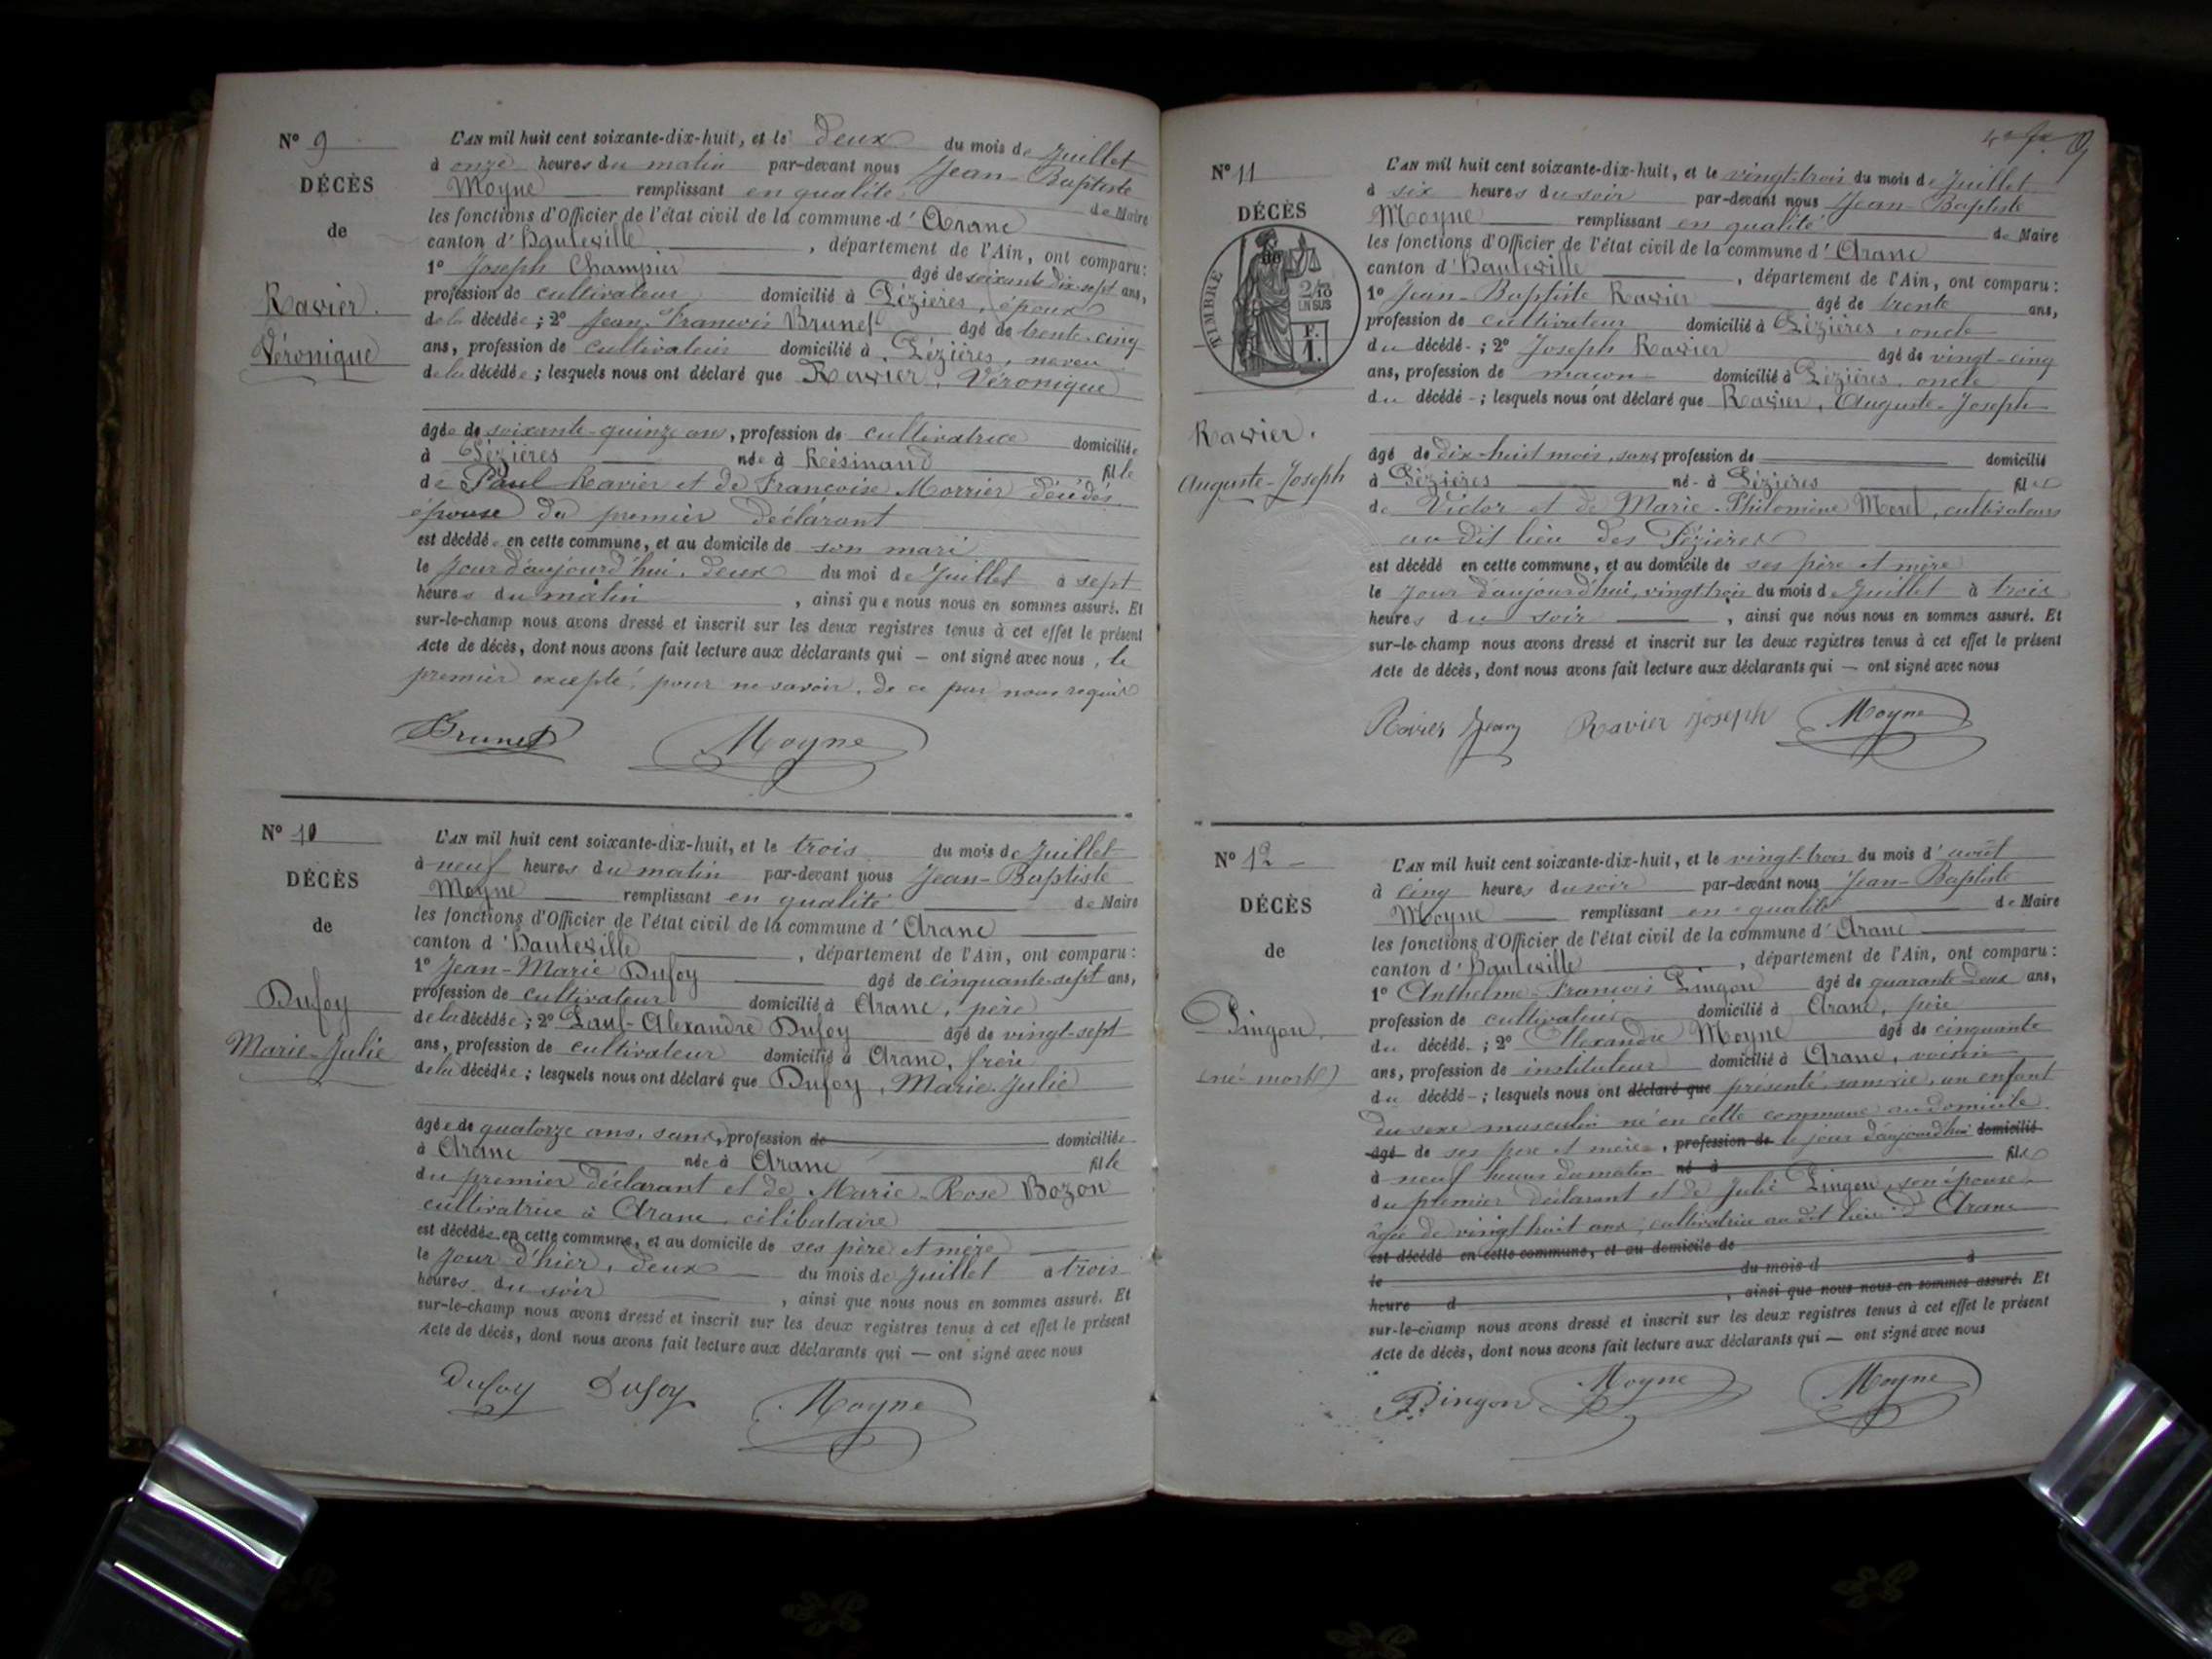 N° 9
DÉCÈS
de
Ravier
Véronique
L'AN mil huit cent soixante-dix-huit, et le deux du mois de Juillet
à onze heures du matin par-devant nous Jean-Baptiste
Moyne remplissant en qualité de Maire
les fonctions d'Officier de l'état civil de la commune d'Aranc
canton d'Hauteville, département de l'Ain, ont comparu:
1° Joseph Champier âgé de soixante dix-sept ans,
profession de cultivateur domicilié à Pézières, époux
de la décédée; 2° Jean-François Brunet âgé de trente-cinq
ans, profession de cultivateur domicilié à Pézières, neveu
de la décédée; lesquels nous ont déclaré que Ravier, Véronique
âgée de soixante-quinze ans, profession de cultivatrice domiciliée
à Pézières née à Résinand fille
de Paul Ravier et de Françoise Morrier décédés,
épouse du premier déclarant
est décédée en cette commune, et au domicile de son mari
le jour d'aujourd'hui, deux du moi de Juillet à sept
heures du matin, ainsi que nous nous en sommes assuré. Et
sur-le-champ nous avons dressé et inscrit sur les deux registres tenus à cet effet le présent
Acte de décès, dont nous avons fait lecture aux déclarants qui — ont signé avec nous, le
premier excepté, pour ne savoir, de ce par nous requis
Brunet Moyne
N° 10
DÉCÈS
de
Dufoy
Marie-Julie
L'AN mil huit cent soixante-dix-huit, et le trois du mois de Juillet
à neuf heures du matin par-devant nous Jean-Baptiste
Moyne remplissant en qualité de Maire
les fonctions d'Officier de l'état civil de la commune d'Aranc
canton d'Hauteville, département de l'Ain, ont comparu:
1° Jean-Marie Dufoy âgé de cinquante-sept ans,
profession de cultivateur domicilié à Aranc, père
de la décédée; 2° Paul-Alexandre Dufoy âgé de vingt-sept
ans, profession de cultivateur domicilié à Aranc, frère
de la décédée; lesquels nous ont déclaré que Dufoy, Marie-Julie
âgée de quatorze ans, sans, profession de domiciliée
à Aranc née à Aranc fille
du premier déclarant et de Marie-Rose Bozon
cultivatrice à Aranc, célibataire
est décédée en cette commune, et au domicile de ses père et mère
le jour d'hier, deux du mois de Juillet à trois
heures du soir, ainsi que nous nous en sommes assuré. Et
sur-le-champ nous avons dressé et inscrit sur les deux registres tenus à cet effet le présent
Acte de décès, dont nous avons fait lecture aux déclarants qui — ont signé avec nous
Dufoy Dufoy Moyne
9
N° 11
DÉCÈS
de
TIMBRE
2/10
EN SUS
F.
1.
Ravier.
Auguste-Joseph
L'AN mil huit cent soixante-dix-huit, et le vingt-trois du mois de Juillet
à six heures du soir par-devant nous Jean-Baptiste
Moyne remplissant en qualité de Maire
les fonctions d'Officier de l'état civil de la commune d'Aranc
canton d'Hauteville, département de l'Ain, ont comparu:
1° Jean-Baptiste Ravier âgé de trente ans,
profession de cultivateur domicilié à Pézières, oncle
du décédé-; 2° Joseph Ravier âgé de vingt-cinq
ans, profession de maçon domicilié à Pézières, oncle
du décédé-; lesquels nous ont déclaré que Ravier, Auguste-Joseph
âgé de dix-huit mois, sans profession de domicilié
à Pézières né- à Pézières fils
de Victor et de Marie-Philomène Morel, cultivateurs
au dit lieu des Pézières
est décédé en cette commune, et au domicile de ses père et mère
le jour d'aujourd'hui, vingt-trois du mois de Juillet à trois
heures du soir, ainsi que nous nous en sommes assuré. Et
sur-le-champ nous avons dressé et inscrit sur les deux registres tenus à cet effet le présent
Acte de décès, dont nous avons fait lecture aux déclarants qui — ont signé avec nous
Ravier Jean Ravier Joseph Moyne
N° 12
DÉCÈS
de
Pingon.
(né-mort)
L'AN mil huit cent soixante-dix-huit, et le vingt-trois du mois d'août
à cinq heures du soir par-devant nous Jean-Baptiste
Moyne remplissant en qualité de Maire
les fonctions d'Officier de l'état civil de la commune d'Aranc
canton d'Hauteville, département de l'Ain, ont comparu:
1° Anthelme-François Pingon âgé de quarante deux ans,
profession de cultivateur domicilié à Aranc, père
du décédé-; 2° Alexandre Moyne âgé de cinquante
ans, profession de instituteur domicilié à Aranc, voisin
du décédé-; lesquels nous ont déclaré que présenté, sans vie, un enfant
du sexe masculin né en cette commune au domicile
âgé de ses père et mère, profession de le jour d'aujourd'hui domicilié
à neuf heures du matin né à fils
du premier déclarant et de Julie Pingon, son épouse
âgée de vingt huit ans, cultivatrice au dit lieu d'Aranc
est décédé en cette commune, et au domicile de
le du mois d à
heure d, ainsi que nous nous en sommes assuré. Et
sur-le-champ nous avons dressé et inscrit sur les deux registres tenus à cet effet le présent
Acte de décès, dont nous avons fait lecture aux déclarants qui — ont signé avec nous
Pingon Moyne Moyne